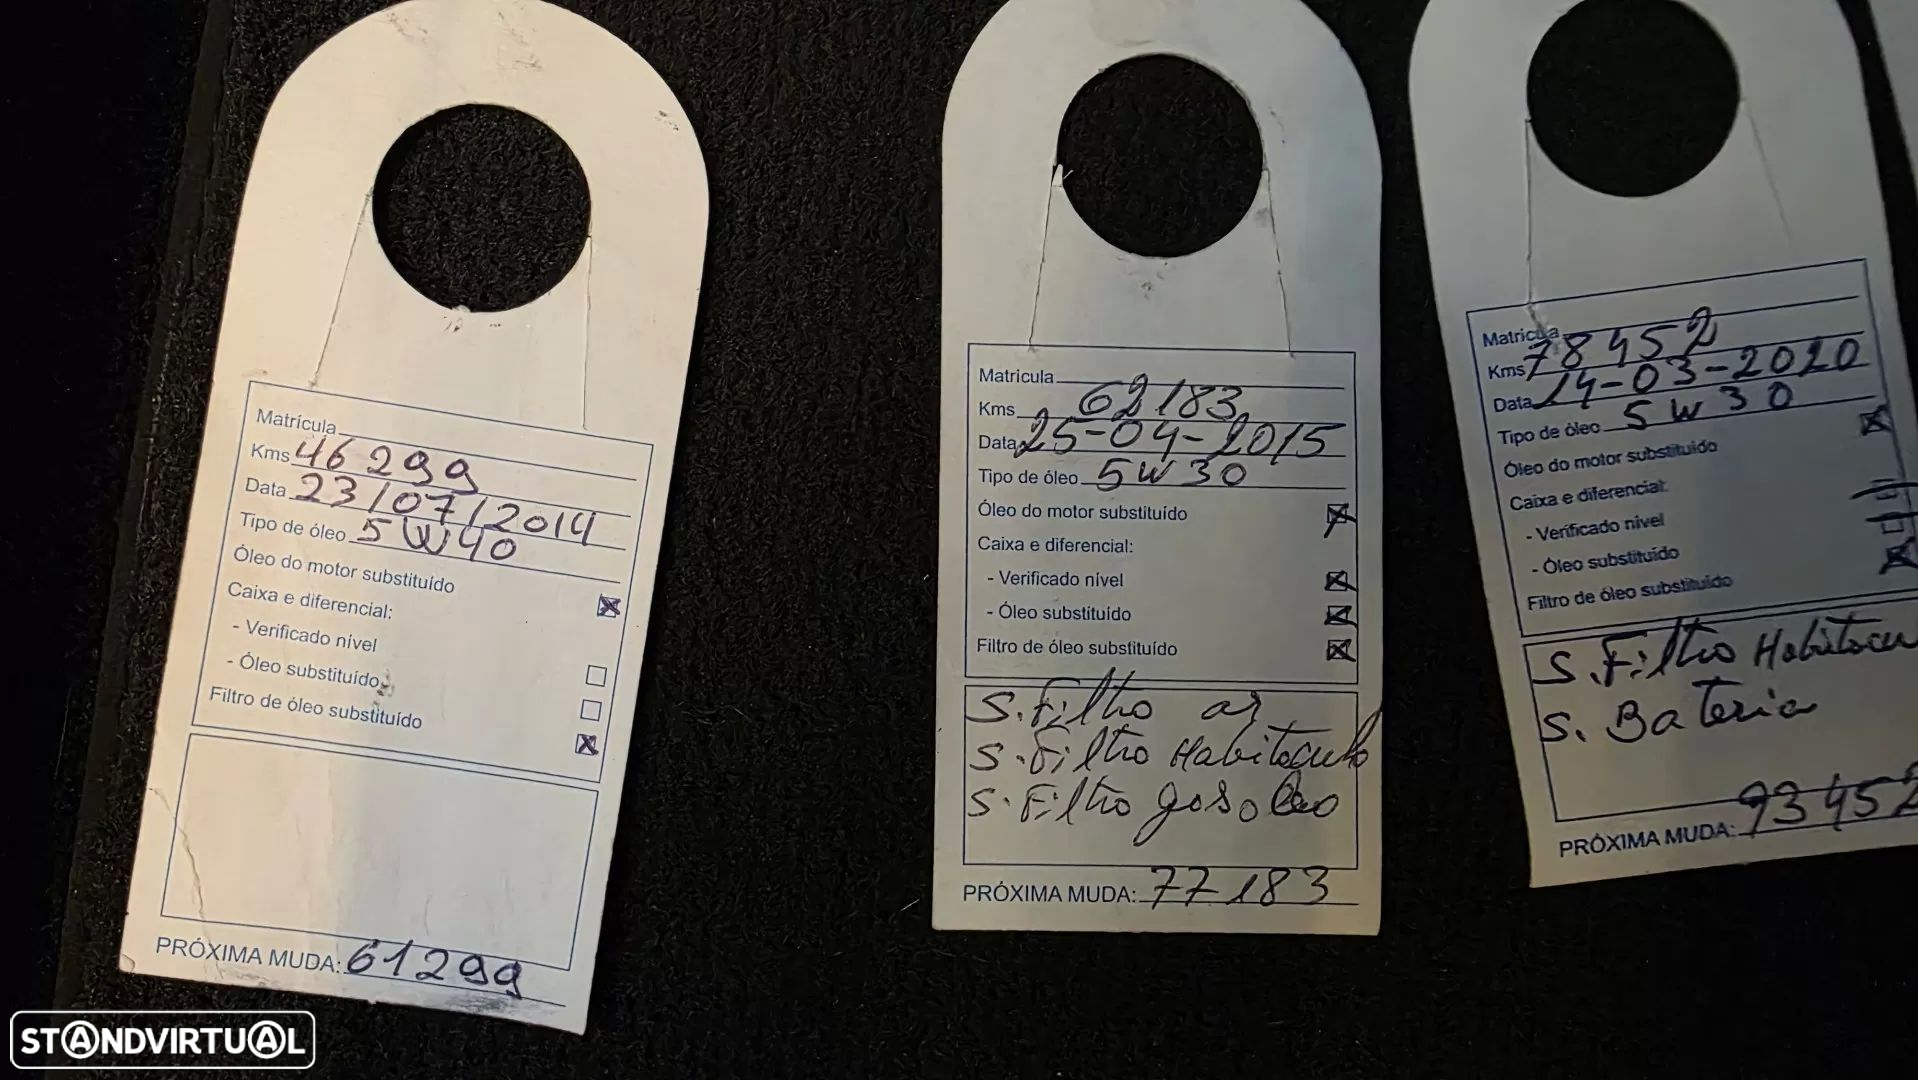 Matrícula
Kms 46299
Data 23/07/2014
Tipo de óleo 5W40
Óleo do motor substituído
Caixa e diferencial:
- Verificado nível
- Óleo substituído
Filtro de óleo substituído
PRÓXIMA MUDA: 61299
Matrícula
Kms 62183
Data 25-04-2015
Tipo de óleo 5W30
Óleo do motor substituído
Caixa e diferencial:
- Verificado nível
- Óleo substituído
Filtro de óleo substituído
S. Filtro ar
S. Filtro Habitaculo
S. Filtro gasoleo
PRÓXIMA MUDA: 77183
Matrícula
Kms 78452
Data 14-03-2020
Tipo de óleo 5W30
Óleo do motor substituído
Caixa e diferencial:
- Verificado nível
- Óleo substituído
Filtro de óleo substituído
S. Filtro Habitacu
S. Bateria
PRÓXIMA MUDA: 93452
STANDVIRTUAL